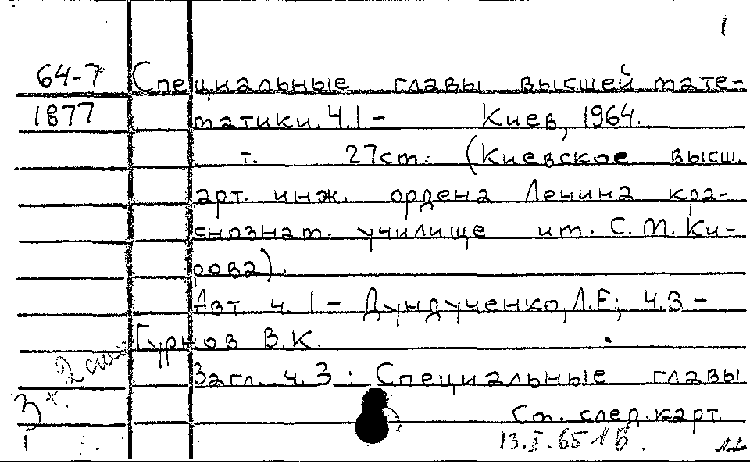 1
64-7 Специальные главы высшей мате-
1877 матики. Ч.1 - Киев, 1964.
т. 27см. (Киевское высш.
арт. инж. ордена Ленина кра-
снознам. училище им. С.М. Ки-
рова).
Авт. ч. 1 - Дундученко, Л.Е; ч.3 -
Гурнов В.К.
Загл. ч. 3: Специальные главы
См. след. карт
13.I.65